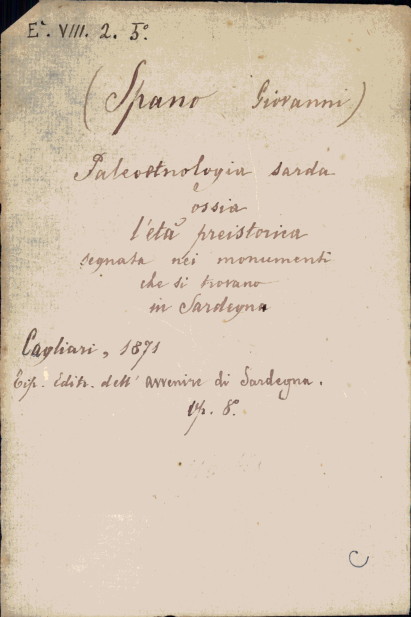 E`. VIII. 2. 5º.
(Spano Giovanni)
Paleoetnologia sarda
ossia
l'età preistorica
segnata nei monumenti
che si trovano
in Sardegna
Cagliari, 1871
Tip. Editr. dell' avvenire di Sardegna.
8º.
C